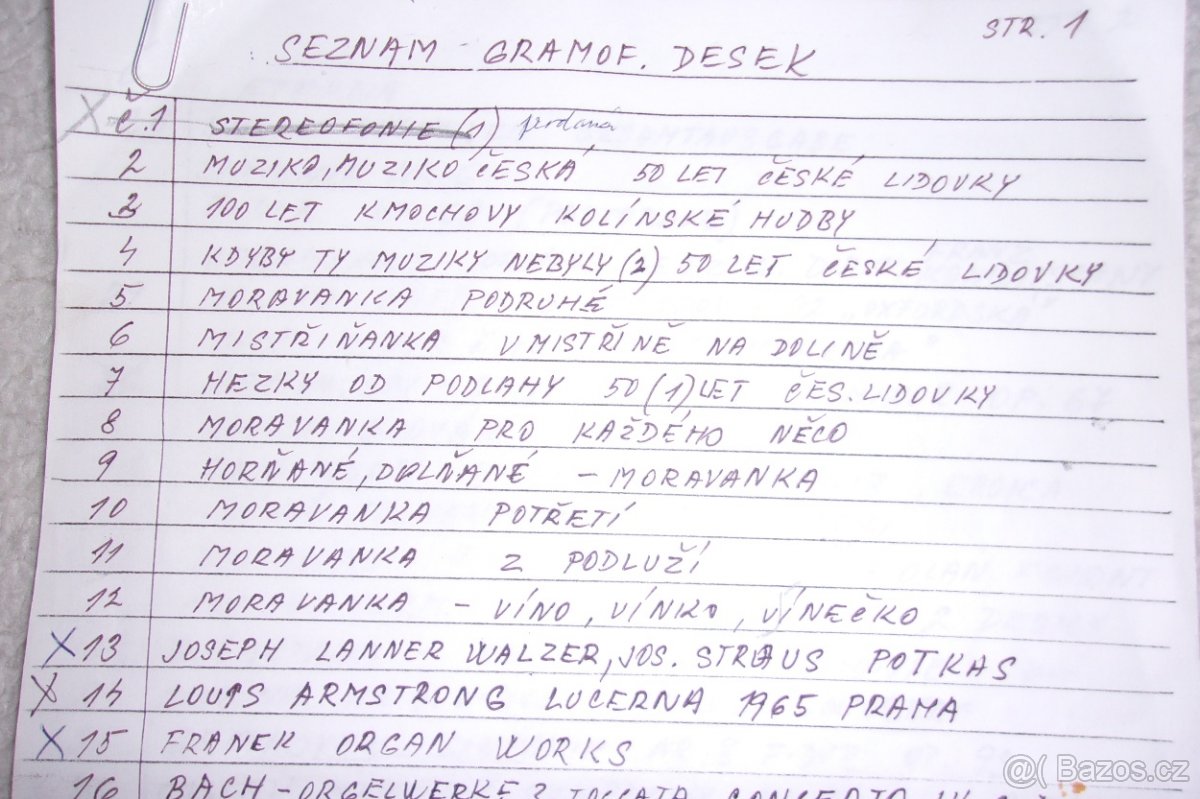 STR. 1
SEZNAM GRAMOF. DESEK
X č.1 STEREOFONIE (1) prodaná
2 MUZIKO, MUZIKO ČESKÁ 50 LET ČESKÉ LIDOVKY
3 100 LET KMOCHOVY KOLÍNSKÉ HUDBY
4 KDYBY TY MUZIKY NEBYLY (2) 50 LET ČESKÉ LIDOVKY
5 MORAVANKA PODRUHÉ
6 MISTŘIŇANKA V MISTŘINĚ NA DOLINĚ
7 HEZKY OD PODLAHY 50 (1) LET ČES. LIDOVKY
8 MORAVANKA PRO KAŽDÉHO NĚCO
9 HORŇANÉ, DOLŇANÉ - MORAVANKA
10 MORAVANKA POTŘETÍ
11 MORAVANKA Z PODLUŽÍ
12 MORAVANKA - VÍNO, VÍNKO, VÍNEČKO
X 13 JOSEPH LANNER WALZER, JOS. STRAUS POTKAS
X 14 LOUIS ARMSTRONG LUCERNA 1965 PRAHA
X 15 FRANEK ORGAN WORKS
16 BACH - ORGELWERKE 2 TOCCATA CONCERTO
@( Bazos.cz